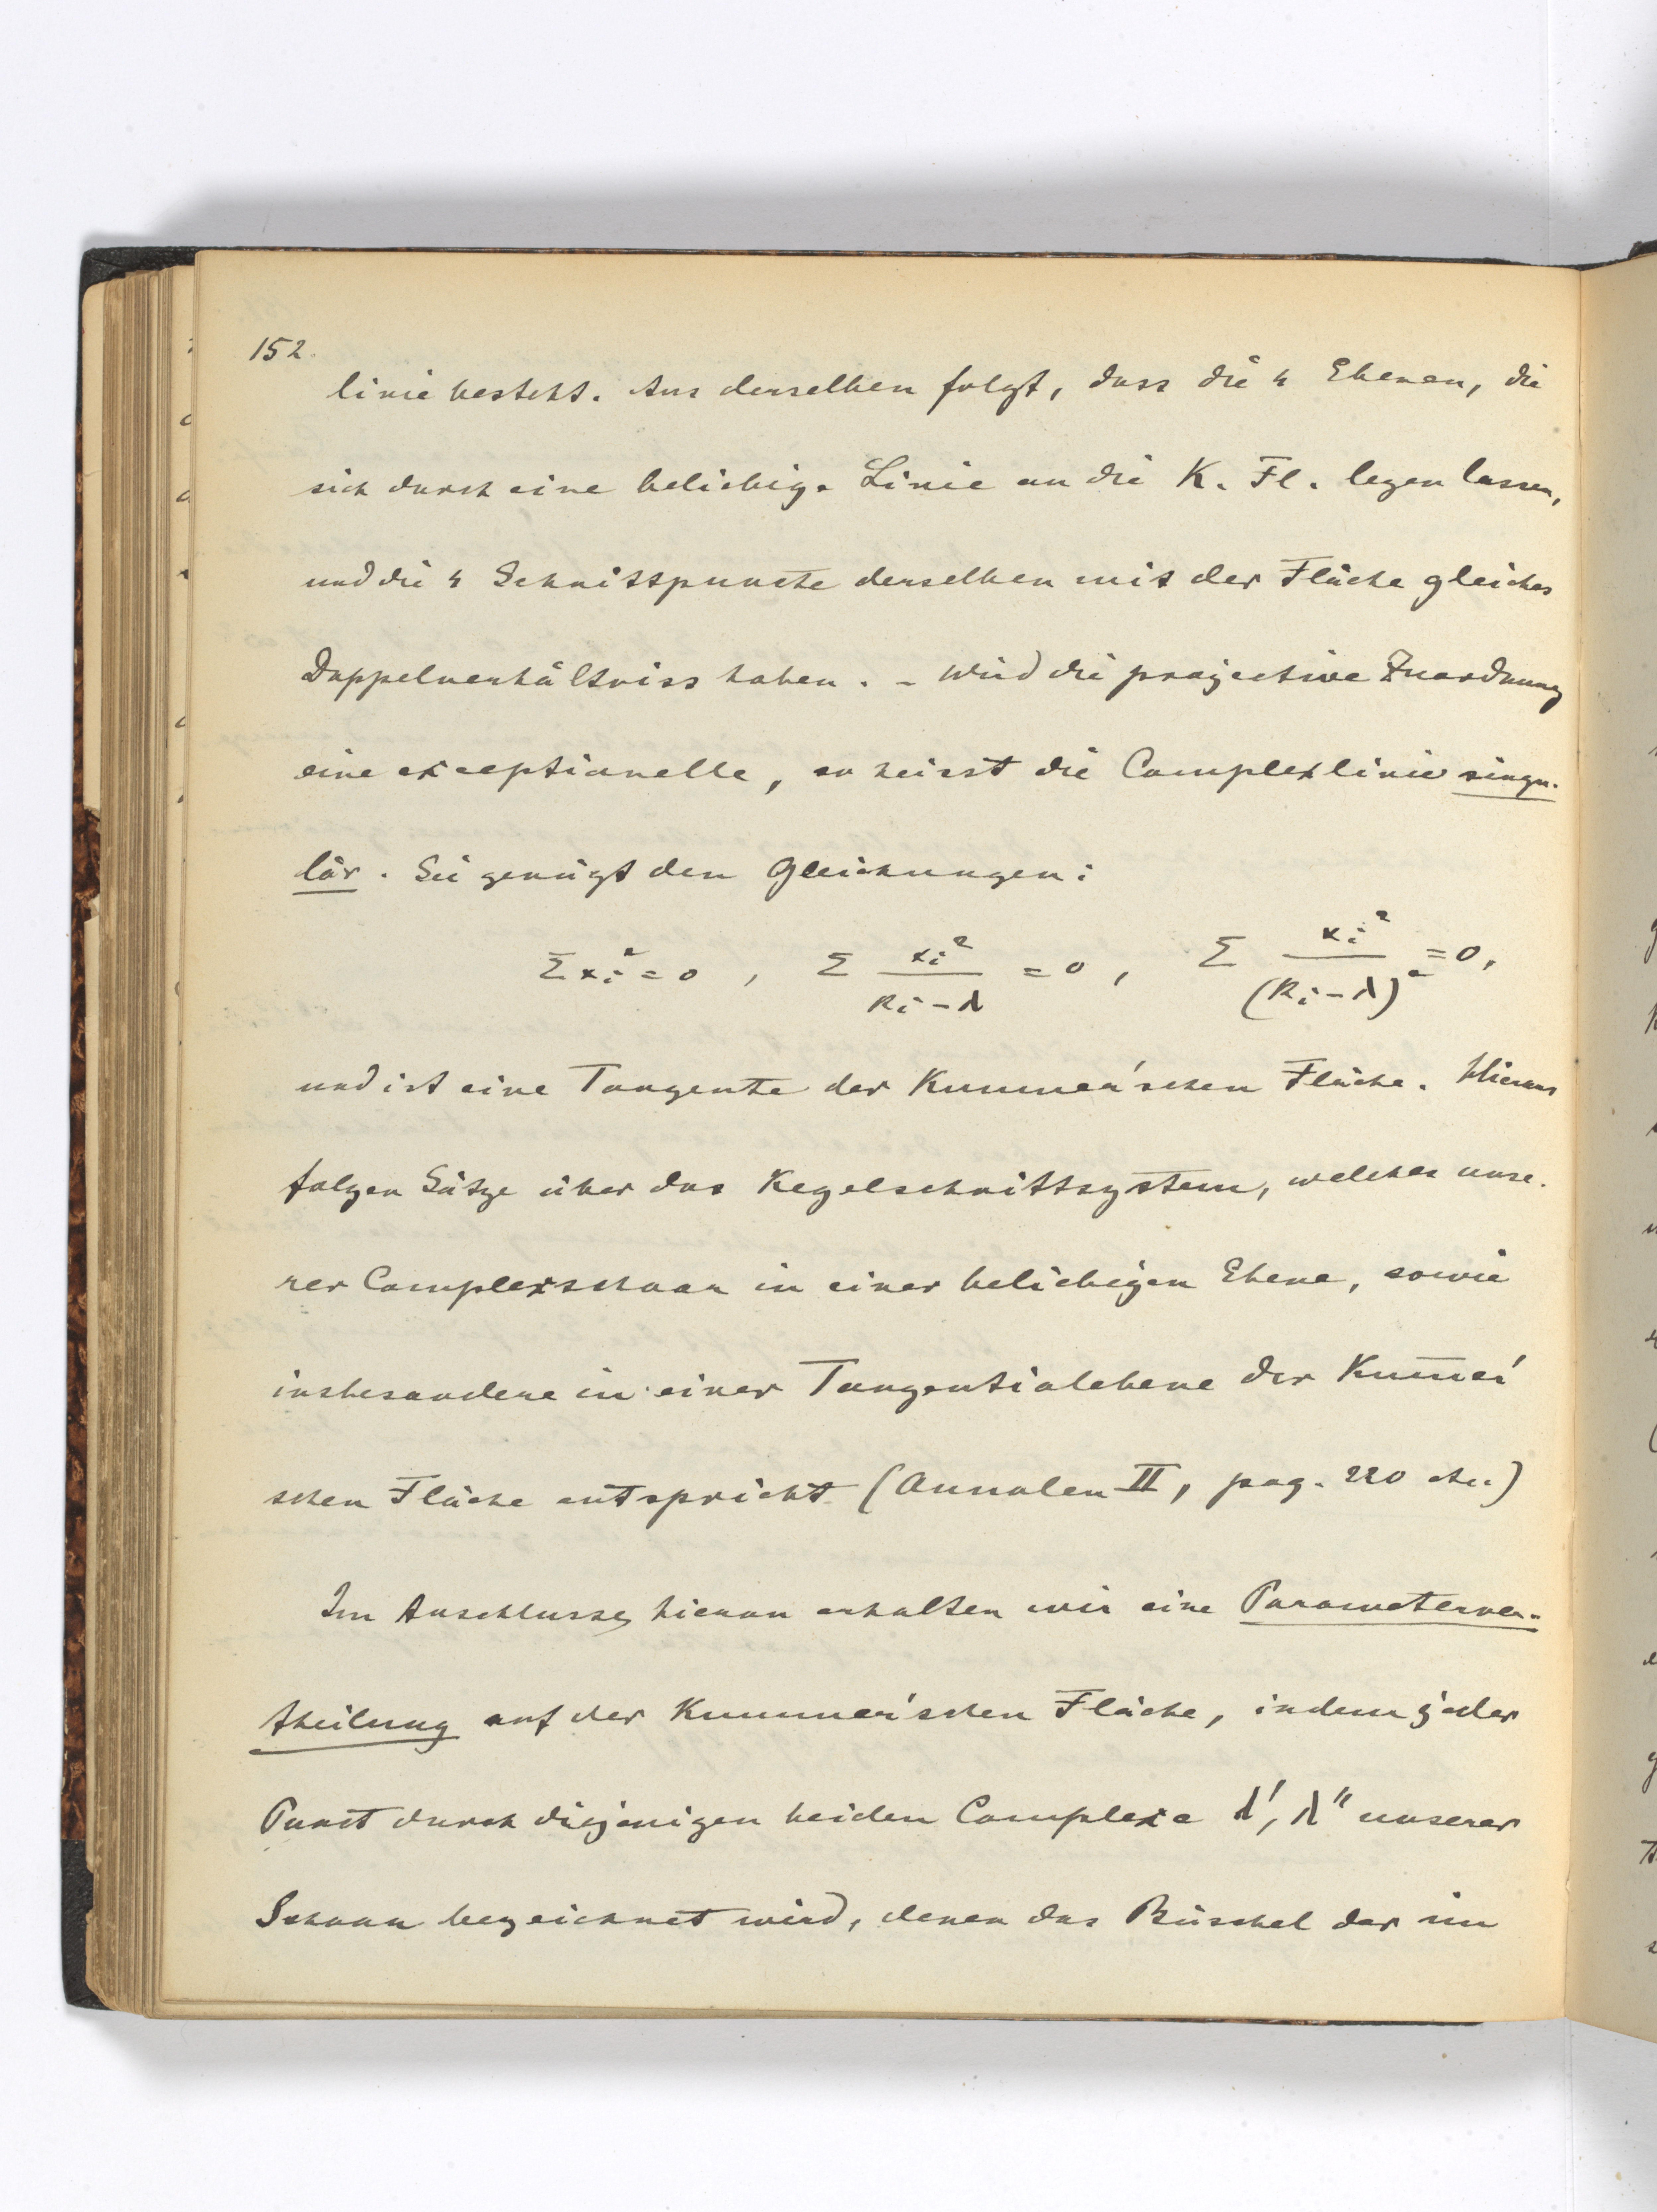 152.
linie besteht. Aus derselben folgt, dass die 4 Ebenen, die
sich durch eine beliebige Linie an die K. Fl. legen lassen,
und die 4 Schnittpuncte derselben mit der Fläche gleiches
Doppelverhältniss haben. – Wird die projective Zuordnung
eine exceptionelle, so heisst die Complexlinie singu-
lär. Sie genügt den Gleichungen:
Σ x_i² = 0 , Σ x_i²/(k_i − λ) = 0 , Σ x_i²/(k_i − λ)² = 0,
und ist eine Tangente der Kummer'schen Fläche. Hieraus
folgen Sätze über das Kegelschnittsystem, welches unse-
rer Complexschaar in einer beliebigen Ebene, sowie
insbesondere in einer Tangentialebene der Kum̅er'
schen Fläche entspricht (Annalen II, pag. 220 etc.)
Im Anschlusse hieran erhalten wir eine Parameterver-
theilung auf der Kummer'schen Fläche, indem jeder
Punct durch diejenigen beiden Complexe λ', λ'' unserer
Schaar bezeichnet wird, denen das Büschel der im